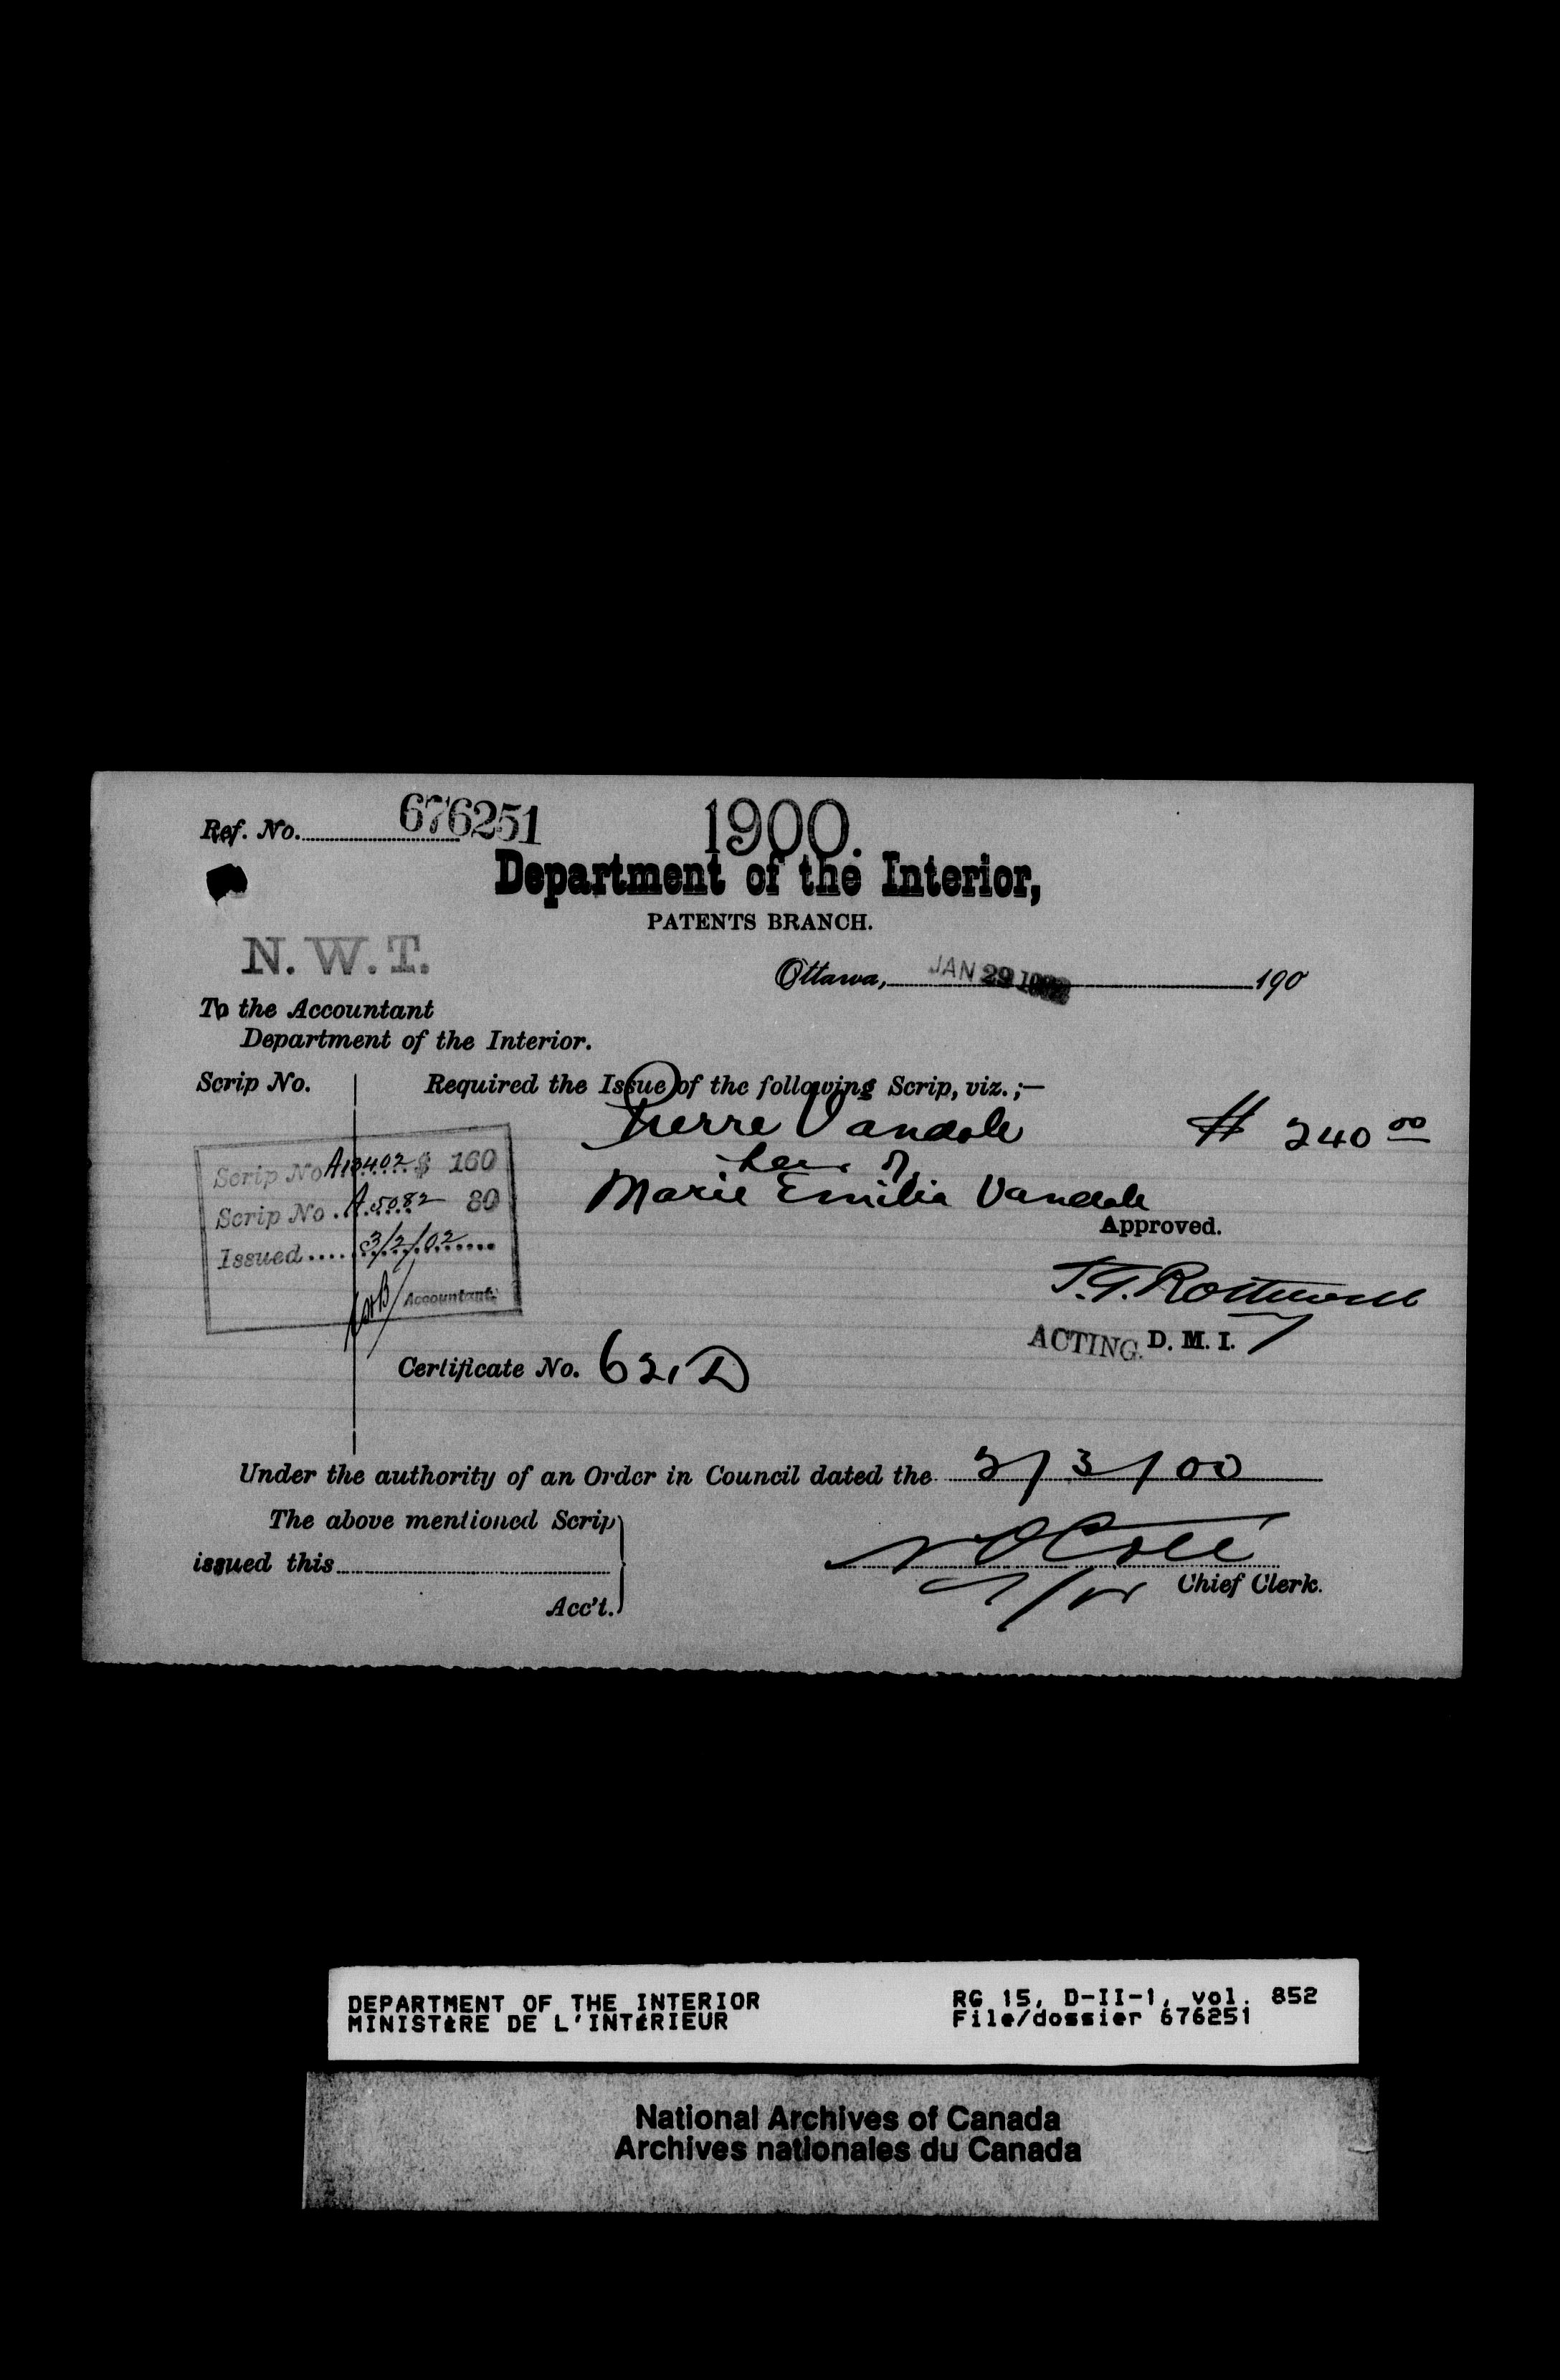 Ref. No. 676251
1900.
Department of the Interior,
PATENTS BRANCH.
N. W. T.
Ottawa, JAN 29 1902 190
To the Accountant
Department of the Interior.
Scrip No. Required the Issue of the following Scrip, viz.;—
Pierre Vandale $ 240 00
heir of
Marie Emilia Vandale
Scrip No A13402 $ 160
Scrip No. A.5082 80
Issued.... 3/2/02
Accountant.
Approved.
T.G. Rothwell
ACTING. D. M. I.
Certificate No. 621 D
Under the authority of an Order in Council dated the 2/3/00
The above mentioned Scrip
issued this
Acc't.
N O Coté
Chief Clerk.
DEPARTMENT OF THE INTERIOR RG 15, D-II-1, vol. 852
MINISTÈRE DE L'INTÉRIEUR File/dossier 676251
National Archives of Canada
Archives nationales du Canada